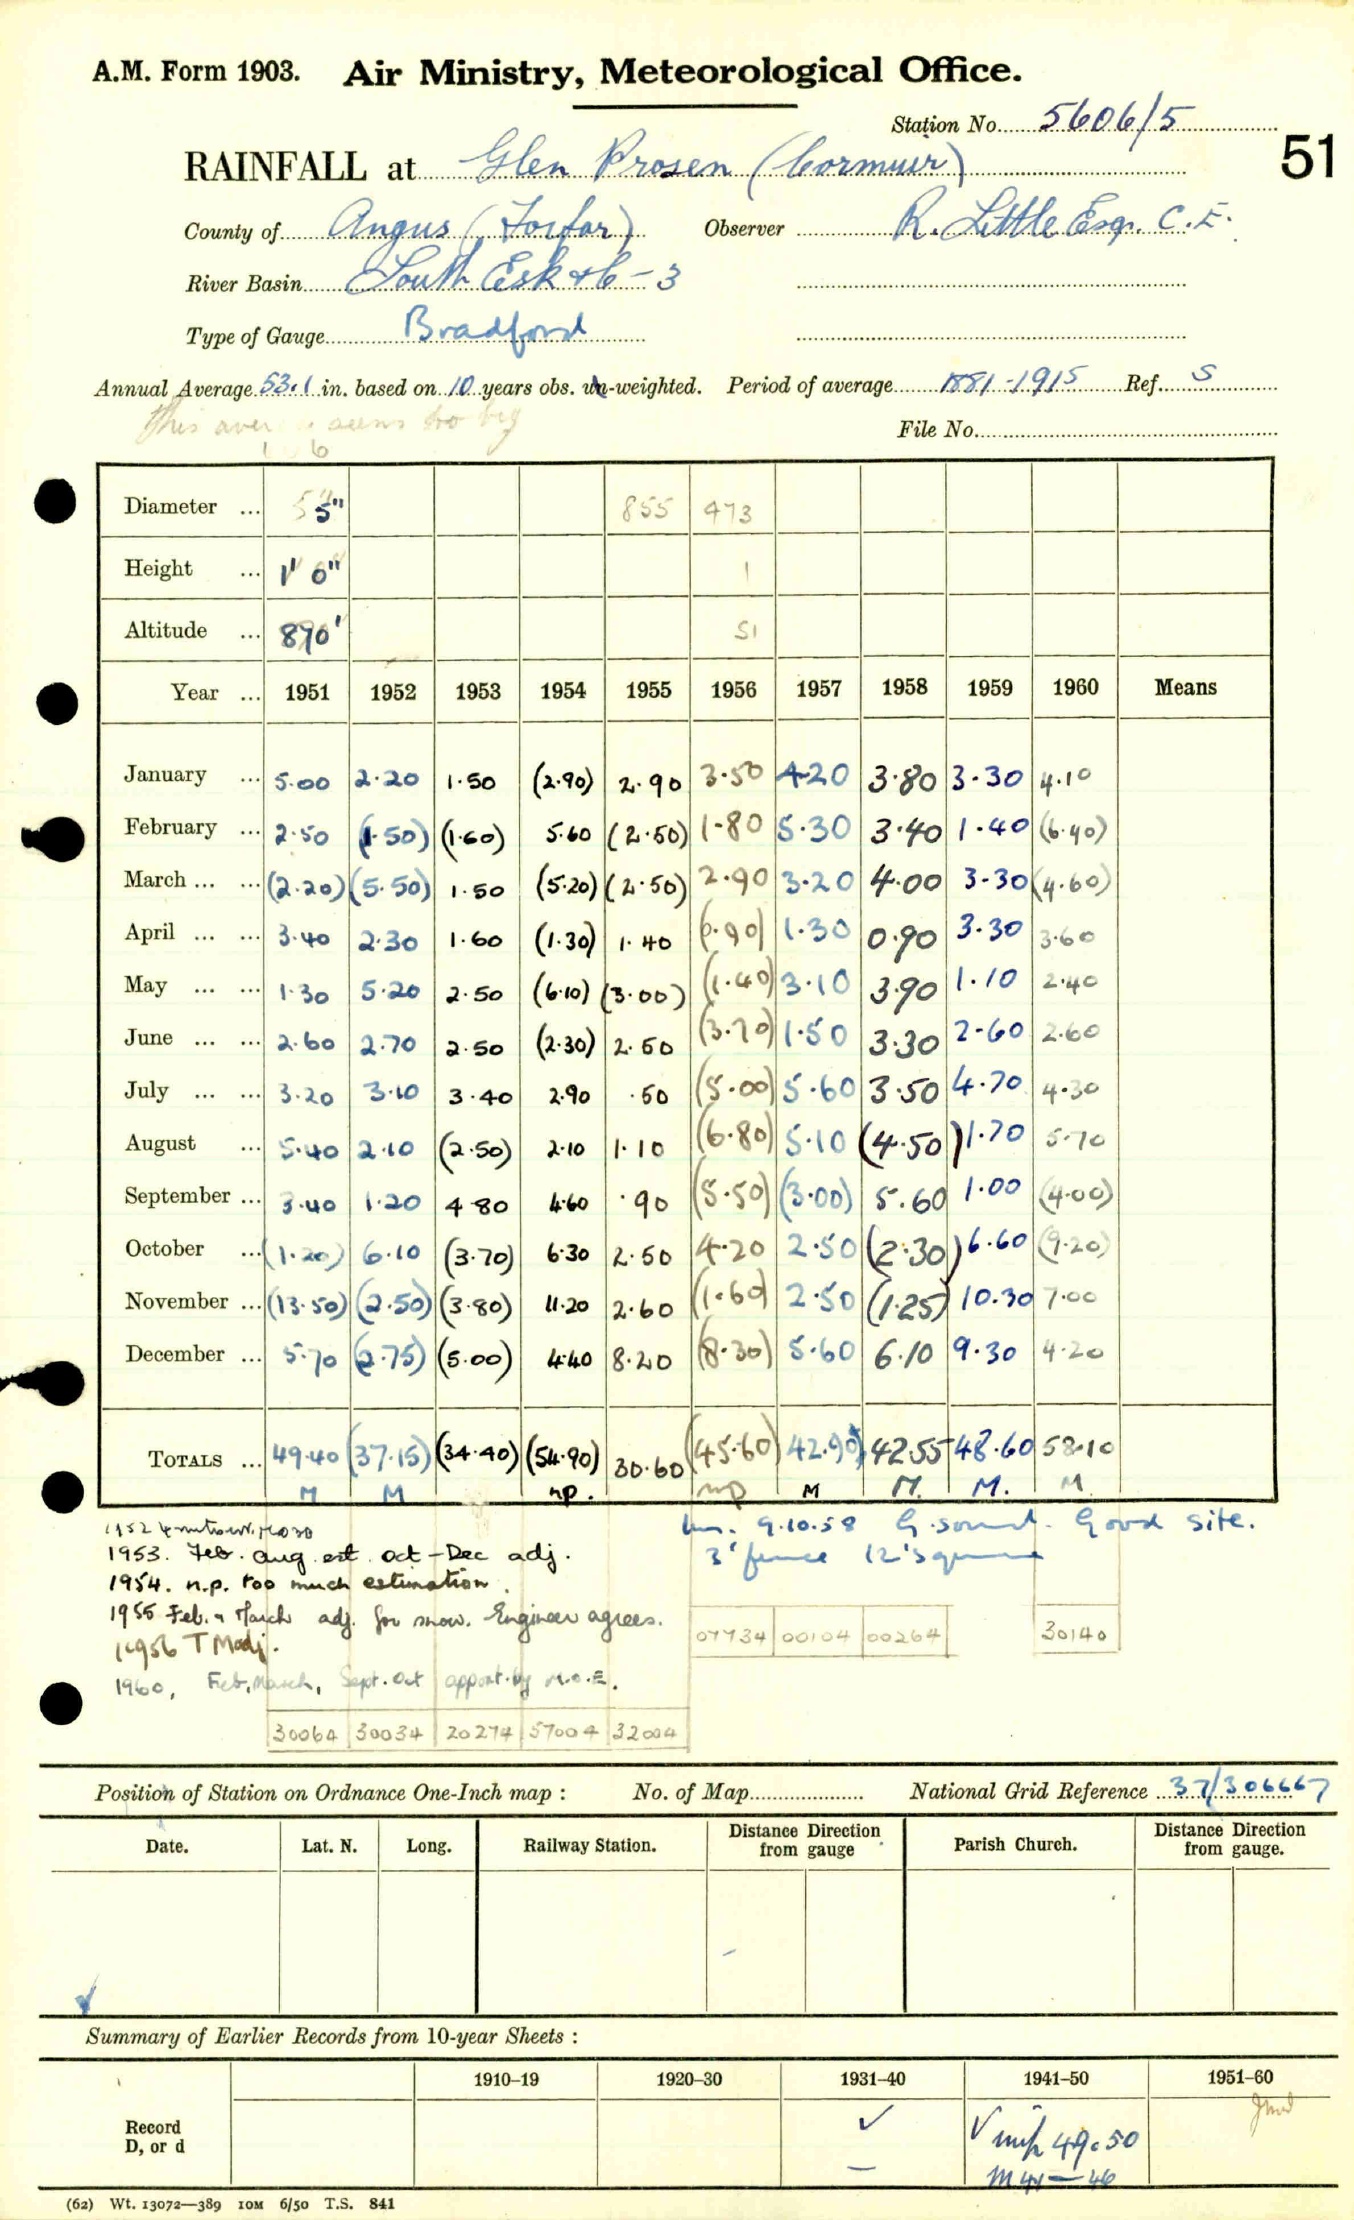 A.M. Form 1903. Air Ministry, Meteorological Office.
Station No. 5606/5
51
RAINFALL at Glen Prosen (Cormuir)
County of Angus (Forfar) Observer R. Little Esqr. C.E.
River Basin South Esk &c - 3
Type of Gauge Bradford
Annual Average 53.1 in. based on 10 years obs. un-weighted. Period of average 1881-1915 Ref. S
This average seems too big
File No.
Diameter ... 5" 855 473
Height ... 1' 0" 1
Altitude ... 870' 51
Year ... 1951 1952 1953 1954 1955 1956 1957 1958 1959 1960 Means
January ... 5.00 2.20 1.50 (2.90) 2.90 3.50 4.20 3.80 3.30 4.10
February ... 2.50 (1.50) (1.60) 5.60 (2.50) 1.80 5.30 3.40 1.40 (6.40)
March ... ... (2.20) (5.50) 1.50 (5.20) (2.50) 2.90 3.20 4.00 3.30 (4.60)
April ... ... 3.40 2.30 1.60 (1.30) 1.40 (0.90) 1.30 0.90 3.30 3.60
May ... ... 1.30 5.20 2.50 (6.10) (3.00) (1.40) 3.10 3.90 1.10 2.40
June ... ... 2.60 2.70 2.50 (2.30) 2.50 (3.70) 1.50 3.30 2.60 2.60
July ... ... 3.20 3.10 3.40 2.90 .50 (5.00) 5.60 3.50 4.70 4.30
August ... 5.40 2.10 (2.50) 2.10 1.10 (6.80) 5.10 (4.50) 1.70 5.70
September ... 3.40 1.20 4.80 4.60 .90 (5.50) (3.00) 5.60 1.00 (4.00)
October ... (1.20) 6.10 (3.70) 6.30 2.50 4.20 2.50 (2.30) 6.60 (9.20)
November ... (13.50) (2.50) (3.80) 11.20 2.60 (1.60) 2.50 (1.25) 10.30 7.00
December ... 5.70 (2.75) (5.00) 4.40 8.20 (8.30) 5.60 6.10 9.30 4.20
TOTALS ... 49.40 (37.15) (34.40) (54.90) 30.60 (45.60) 42.90 42.55 48.60 58.10
M M np. np M M. M. M
1952
9.10.58 G. sound. Good site.
1953. Feb. Aug est. Oct-Dec adj. 3' fence 12' square
1954. n.p. too much estimation.
1955 Feb. & March adj. for snow. Engineer agrees.
07734 00104 00264 30140
1956 T Modj.
1960, Feb, March, Sept. Oct apport. by M.O.E.
30064 30034 20274 57004 32004
Position of Station on Ordnance One-Inch map : No. of Map National Grid Reference 37/306667
Date. Lat. N. Long. Railway Station. Distance from Direction gauge Parish Church. Distance from Direction gauge.
Summary of Earlier Records from 10-year Sheets :
1910-19 1920-30 1931-40 1941-50 1951-60
Record
D, or d
✓ – ✓ 49.50
M 41-46
(62) Wt. 13072—389 10M 6/50 T.S. 841